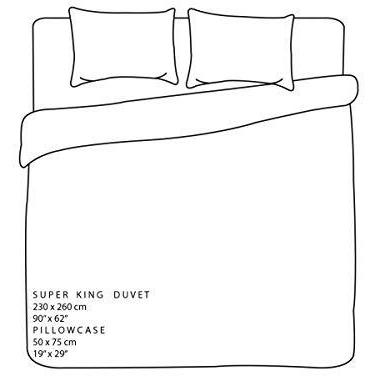 SUPER KING DUVET
230 x 260 cm
90” x 62”
PILLOWCASE
50 x 75 cm
19” x 29”